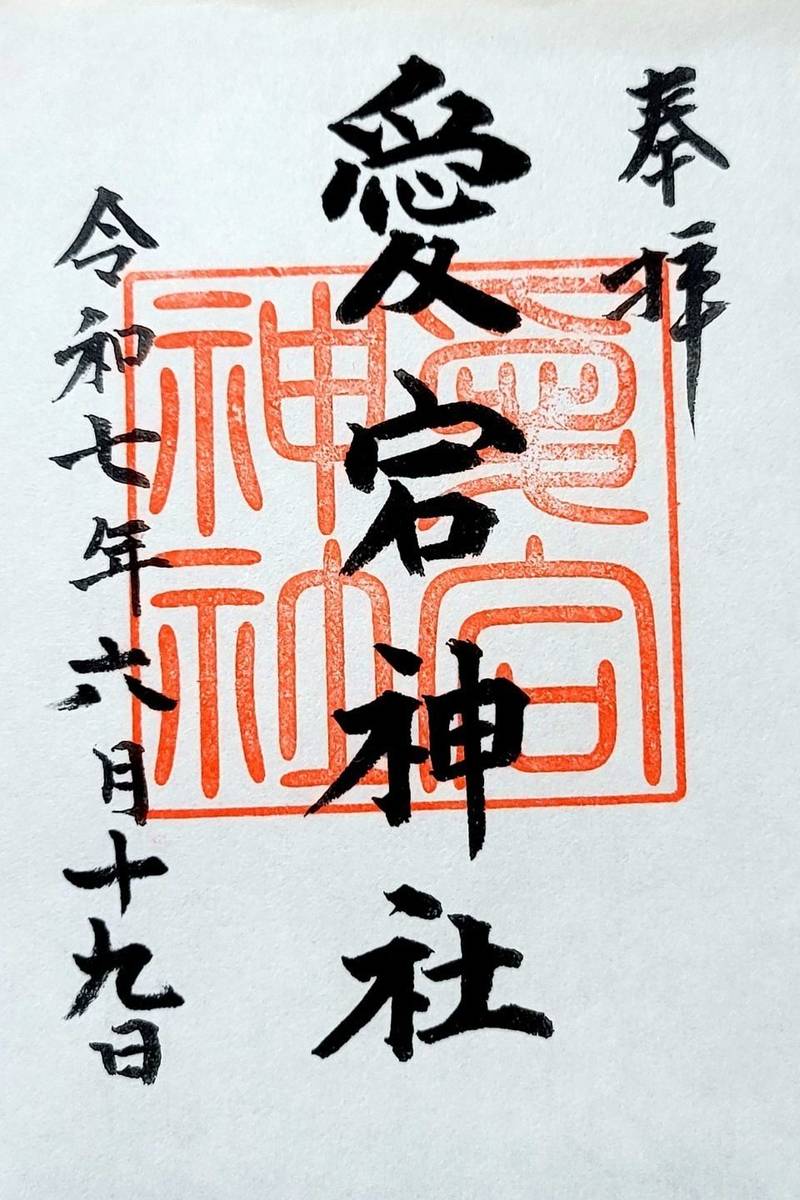 奉拝
愛宕神社
愛宕神社
令和七年六月十九日